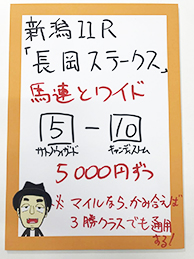 新潟11R
「長岡ステークス」
馬連とワイド
5-10
サトノウィザード キャンディストーム
5000円ずつ
※マイルなら、かみ合えば
3勝クラスでも通用
する!